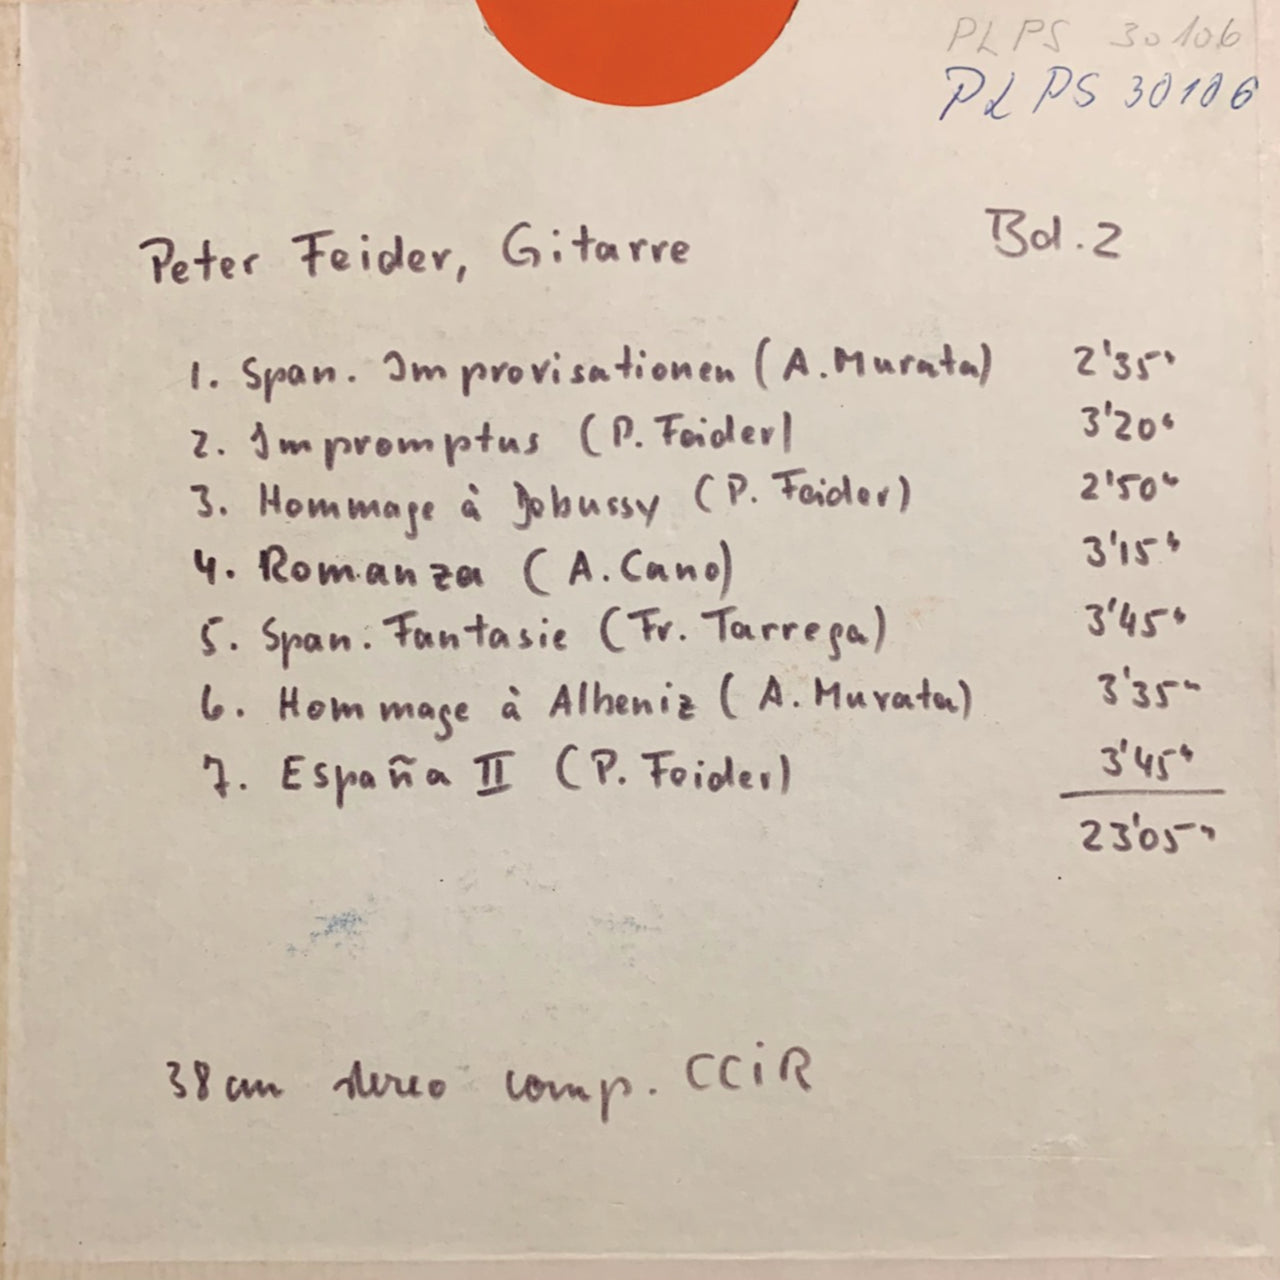 PLPS 30106
PLPS 30106
Peter Feider, Gitarre Bd. 2
1. Span. Improvisationen (A. Murata) 2'35"
2. Impromptus (P. Feider) 3'20"
3. Hommage à Debussy (P. Feider) 2'50"
4. Romanza (A. Cano) 3'15"
5. Span. Fantasie (Fr. Tarrega) 3'45"
6. Hommage à Albeniz (A. Murata) 3'35"
7. España II (P. Feider) 3'45"
23'05"
38 cm stereo comp. CCiR